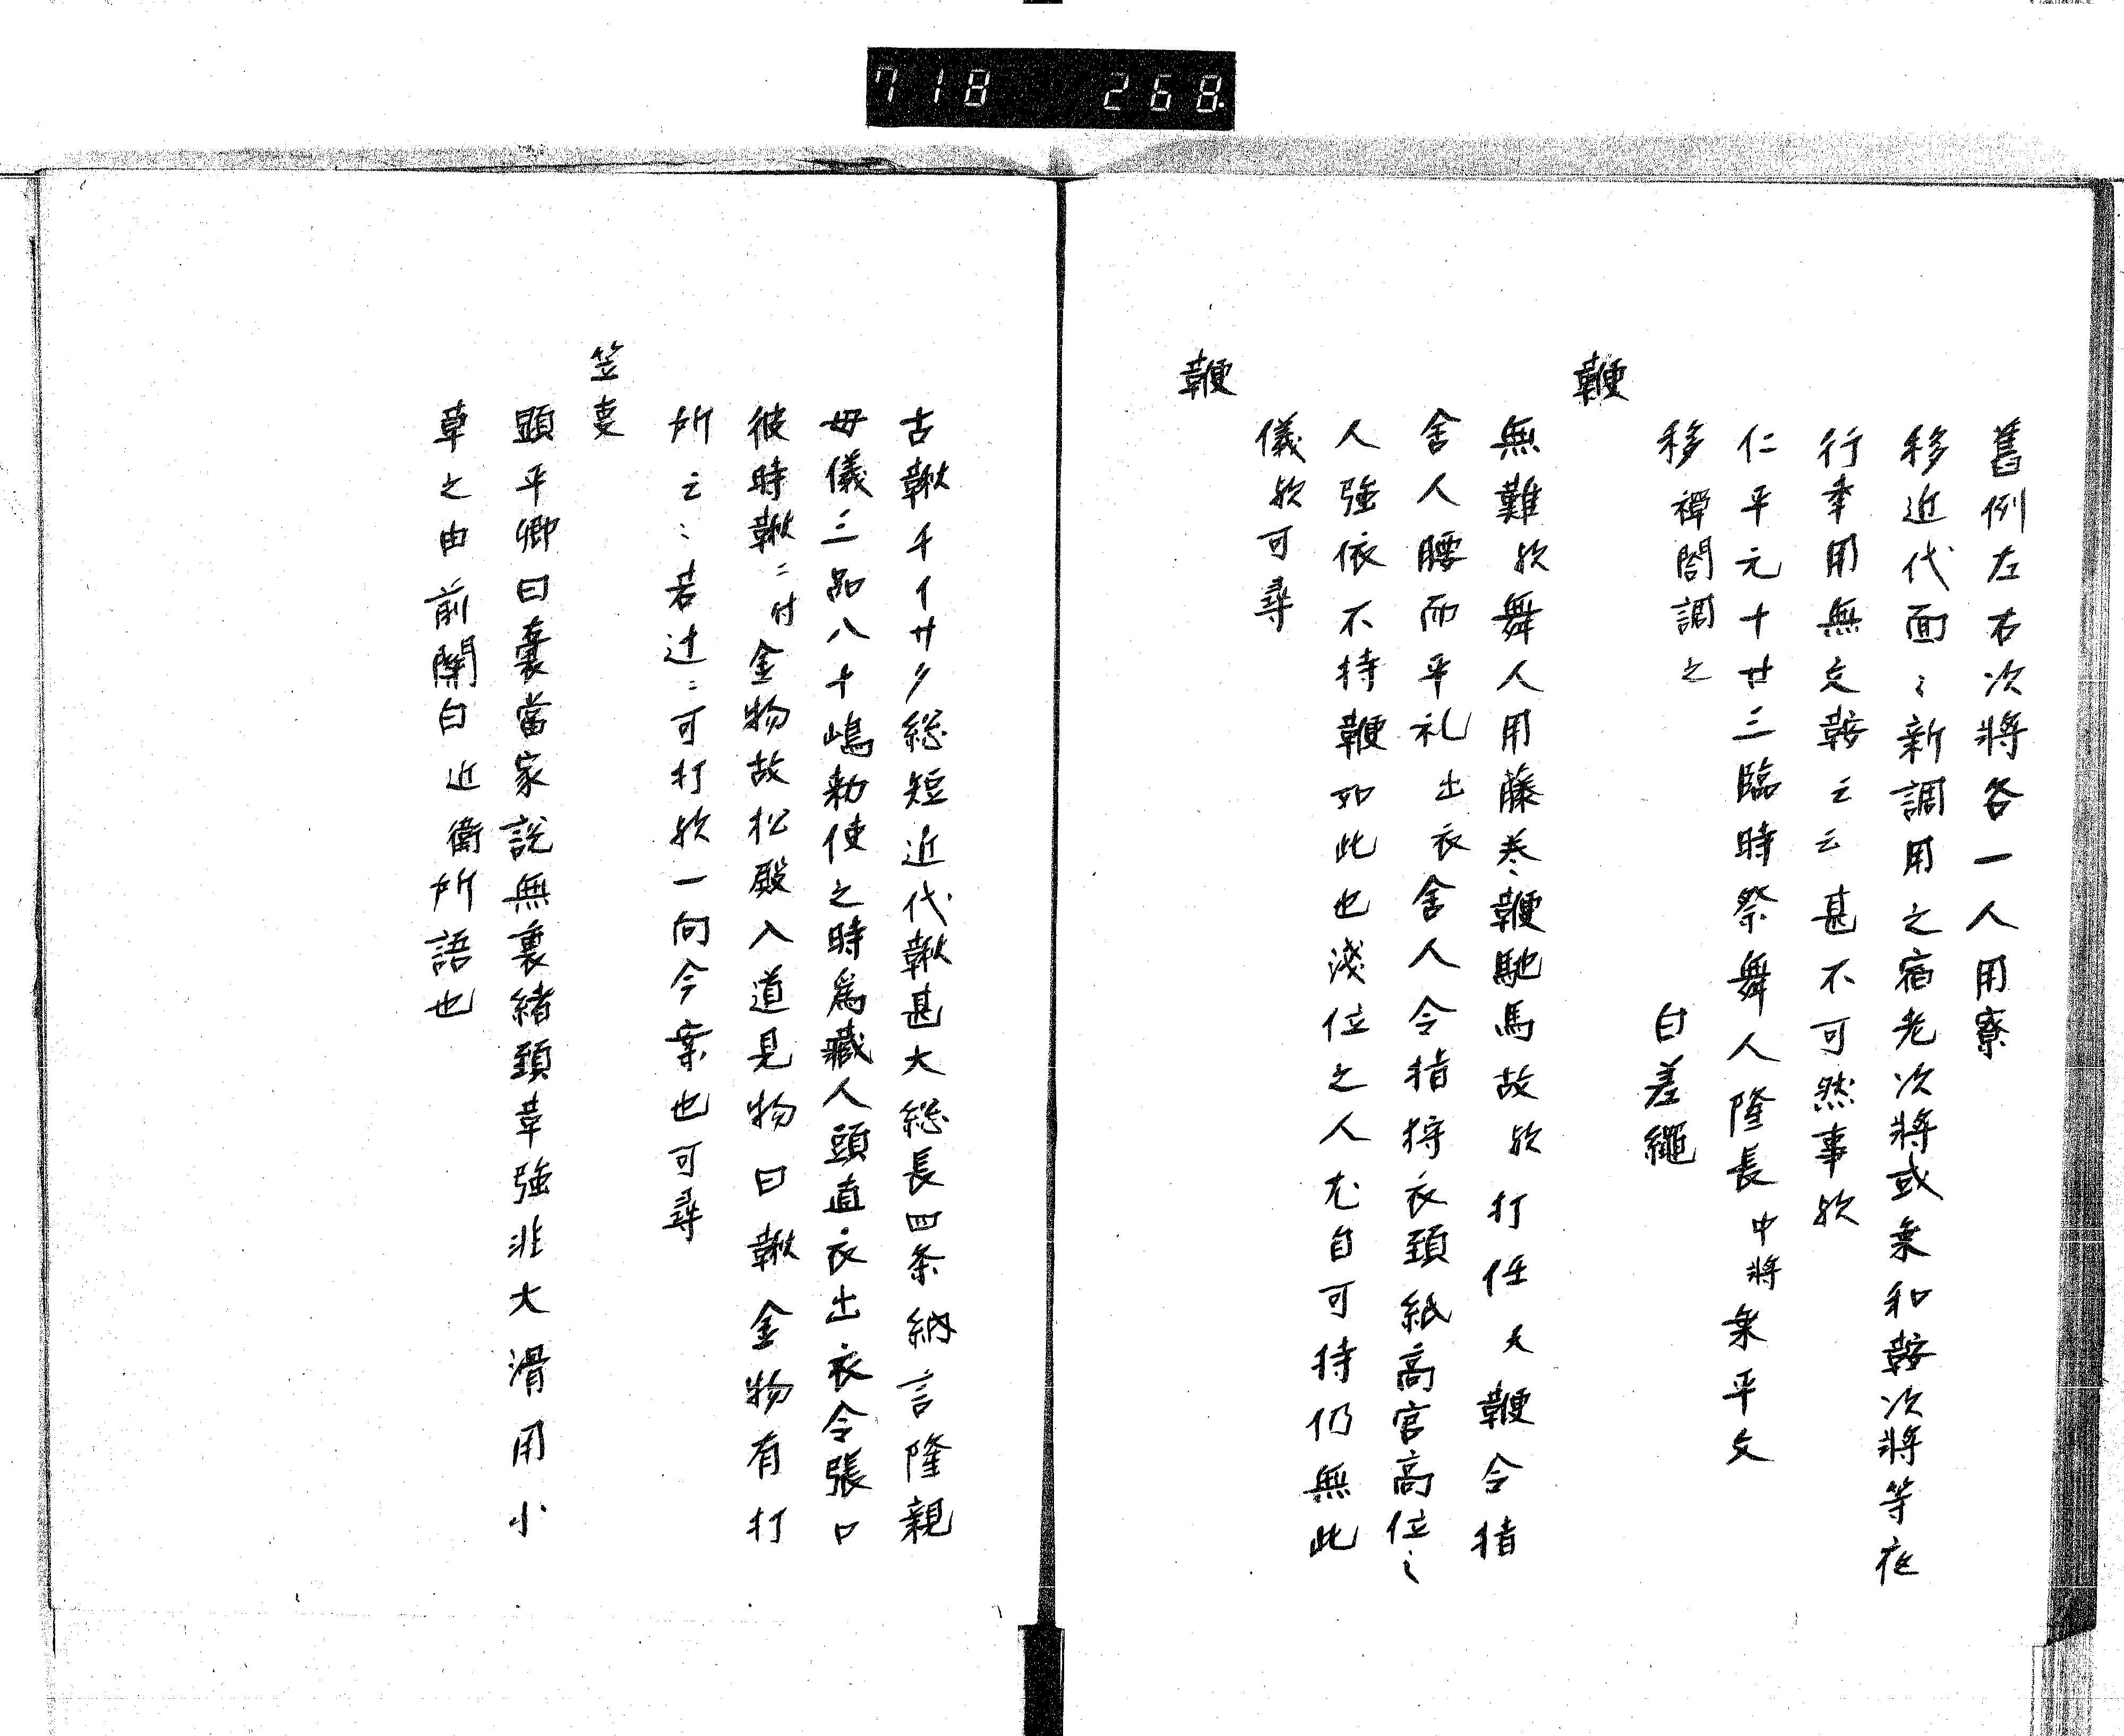 718 268
舊例左右次將各一人用寮
移近代面〻新調用之宿老次將或乗和鞍次將等夜
行幸用無文鞍云云甚不可然事歟
仁平元十廿三臨時祭舞人隆長中將乗平文
移 禅閤調之 白差繩
鞭
無難歟舞人用藤巻〻鞭馳馬故歟打任天鞭令指
舍人腰而平礼出衣舍人令指狩衣頚紙高官高位〻
人強依不持鞭如此也淺位之人尤自可持仍無此
儀歟可尋
鞭
古鞦千イ廿夕総短近代鞦甚大総長四条納言隆親
母儀三品八十嶋勅使之時爲藏人頭直衣出衣令張口
彼時鞦ニ付金物故松殿入道見物曰鞦金物有打
所云〻若辻ニ可打歟一向今案也可尋
笠事
顕平卿曰裏當家説無裏緒頚革強非大滑用小
革之由前關白近衛所語也